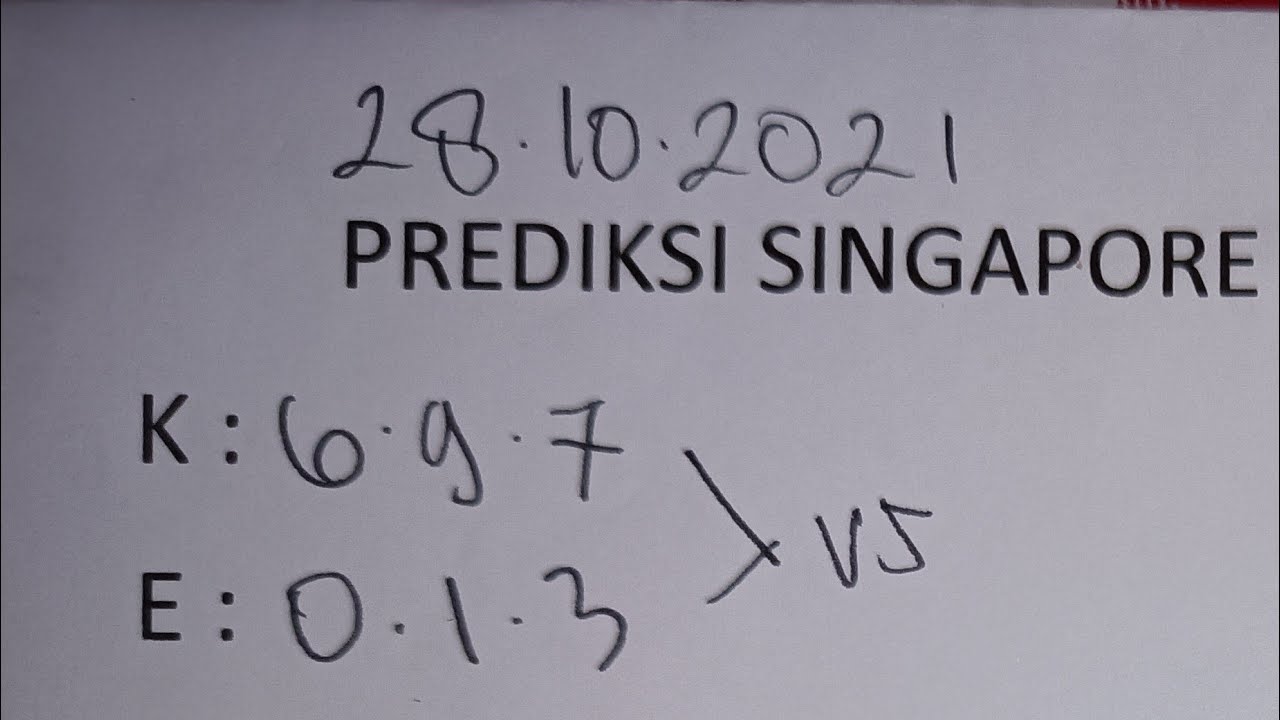 28.10.2021
PREDIKSI SINGAPORE
K : 6.9.7
vs
E : 0.1.3